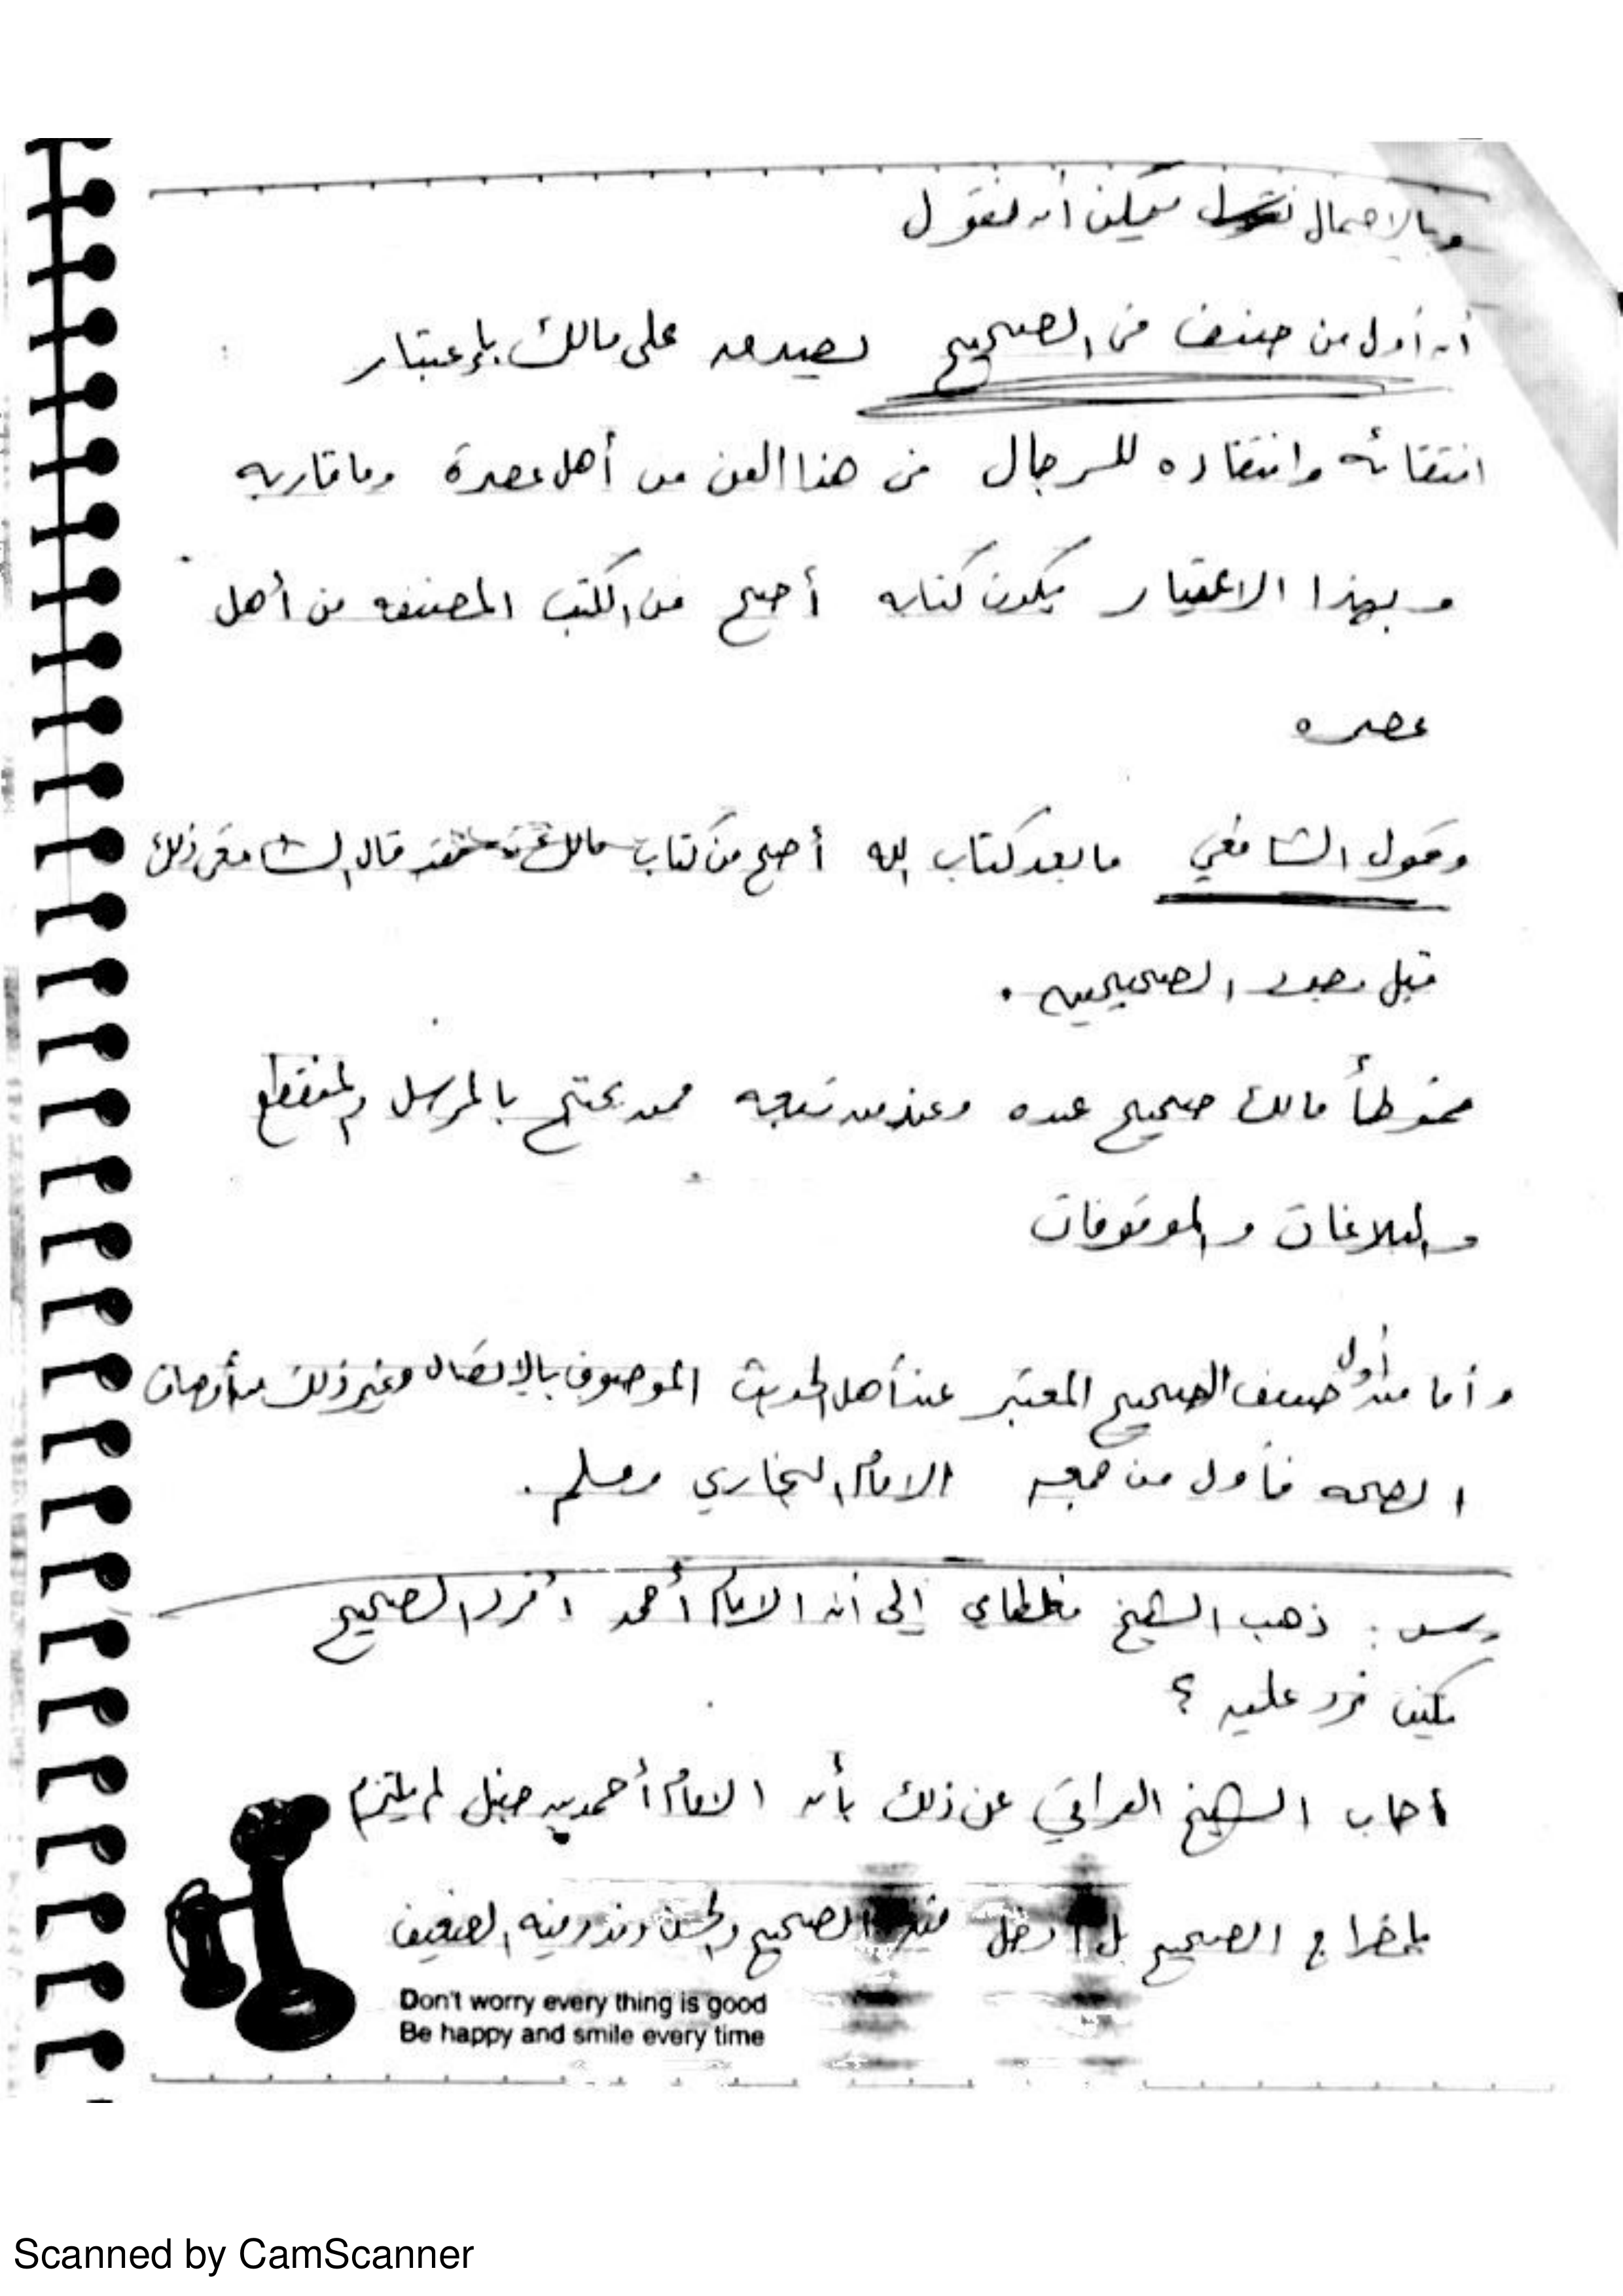 وبالاجمال يمكن أن نقول
أن أول من صنف في الصحيح يصدق على مالك بإعتبار
انتقائه وانتقاده للرجال في هذا الفن من أهل عصرة وما قاربه
وبهذا الاعتبار يكون كتابه أصح من الكتب المصنفه من أهل
عصره
وقول الشافعي ما بعد كتاب الله أصح من كتاب مالك فقد قال الشافعي ذلك
قبل وجود الصحيحين .
فموطأ مالك صحيح عنده وعند من تبعه ممن يحتج بالمرسل والمنقطع
والبلاغات والموقوفات
وأما من أول صنف الصحيح المعتبر عند أهل الحديث الموصوف بالاتصال وغير ذلك من أوصاف
الصحه فأول من جمعه الامام البخاري ومسلم .
س : ذهب الشيخ مغلطاي إلى أن الامام أحمد أفرد الصحيح
فكيف نرد عليه ؟
أجاب الشيخ العراقي عن ذلك بأن الامام أحمد بن حنبل لم يلتزم
بإخراج الصحيح بل أدخل فيه الصحيح والحسن وندر فيه الضعيف
Don't worry every thing is good
Be happy and smile every time
Scanned by CamScanner